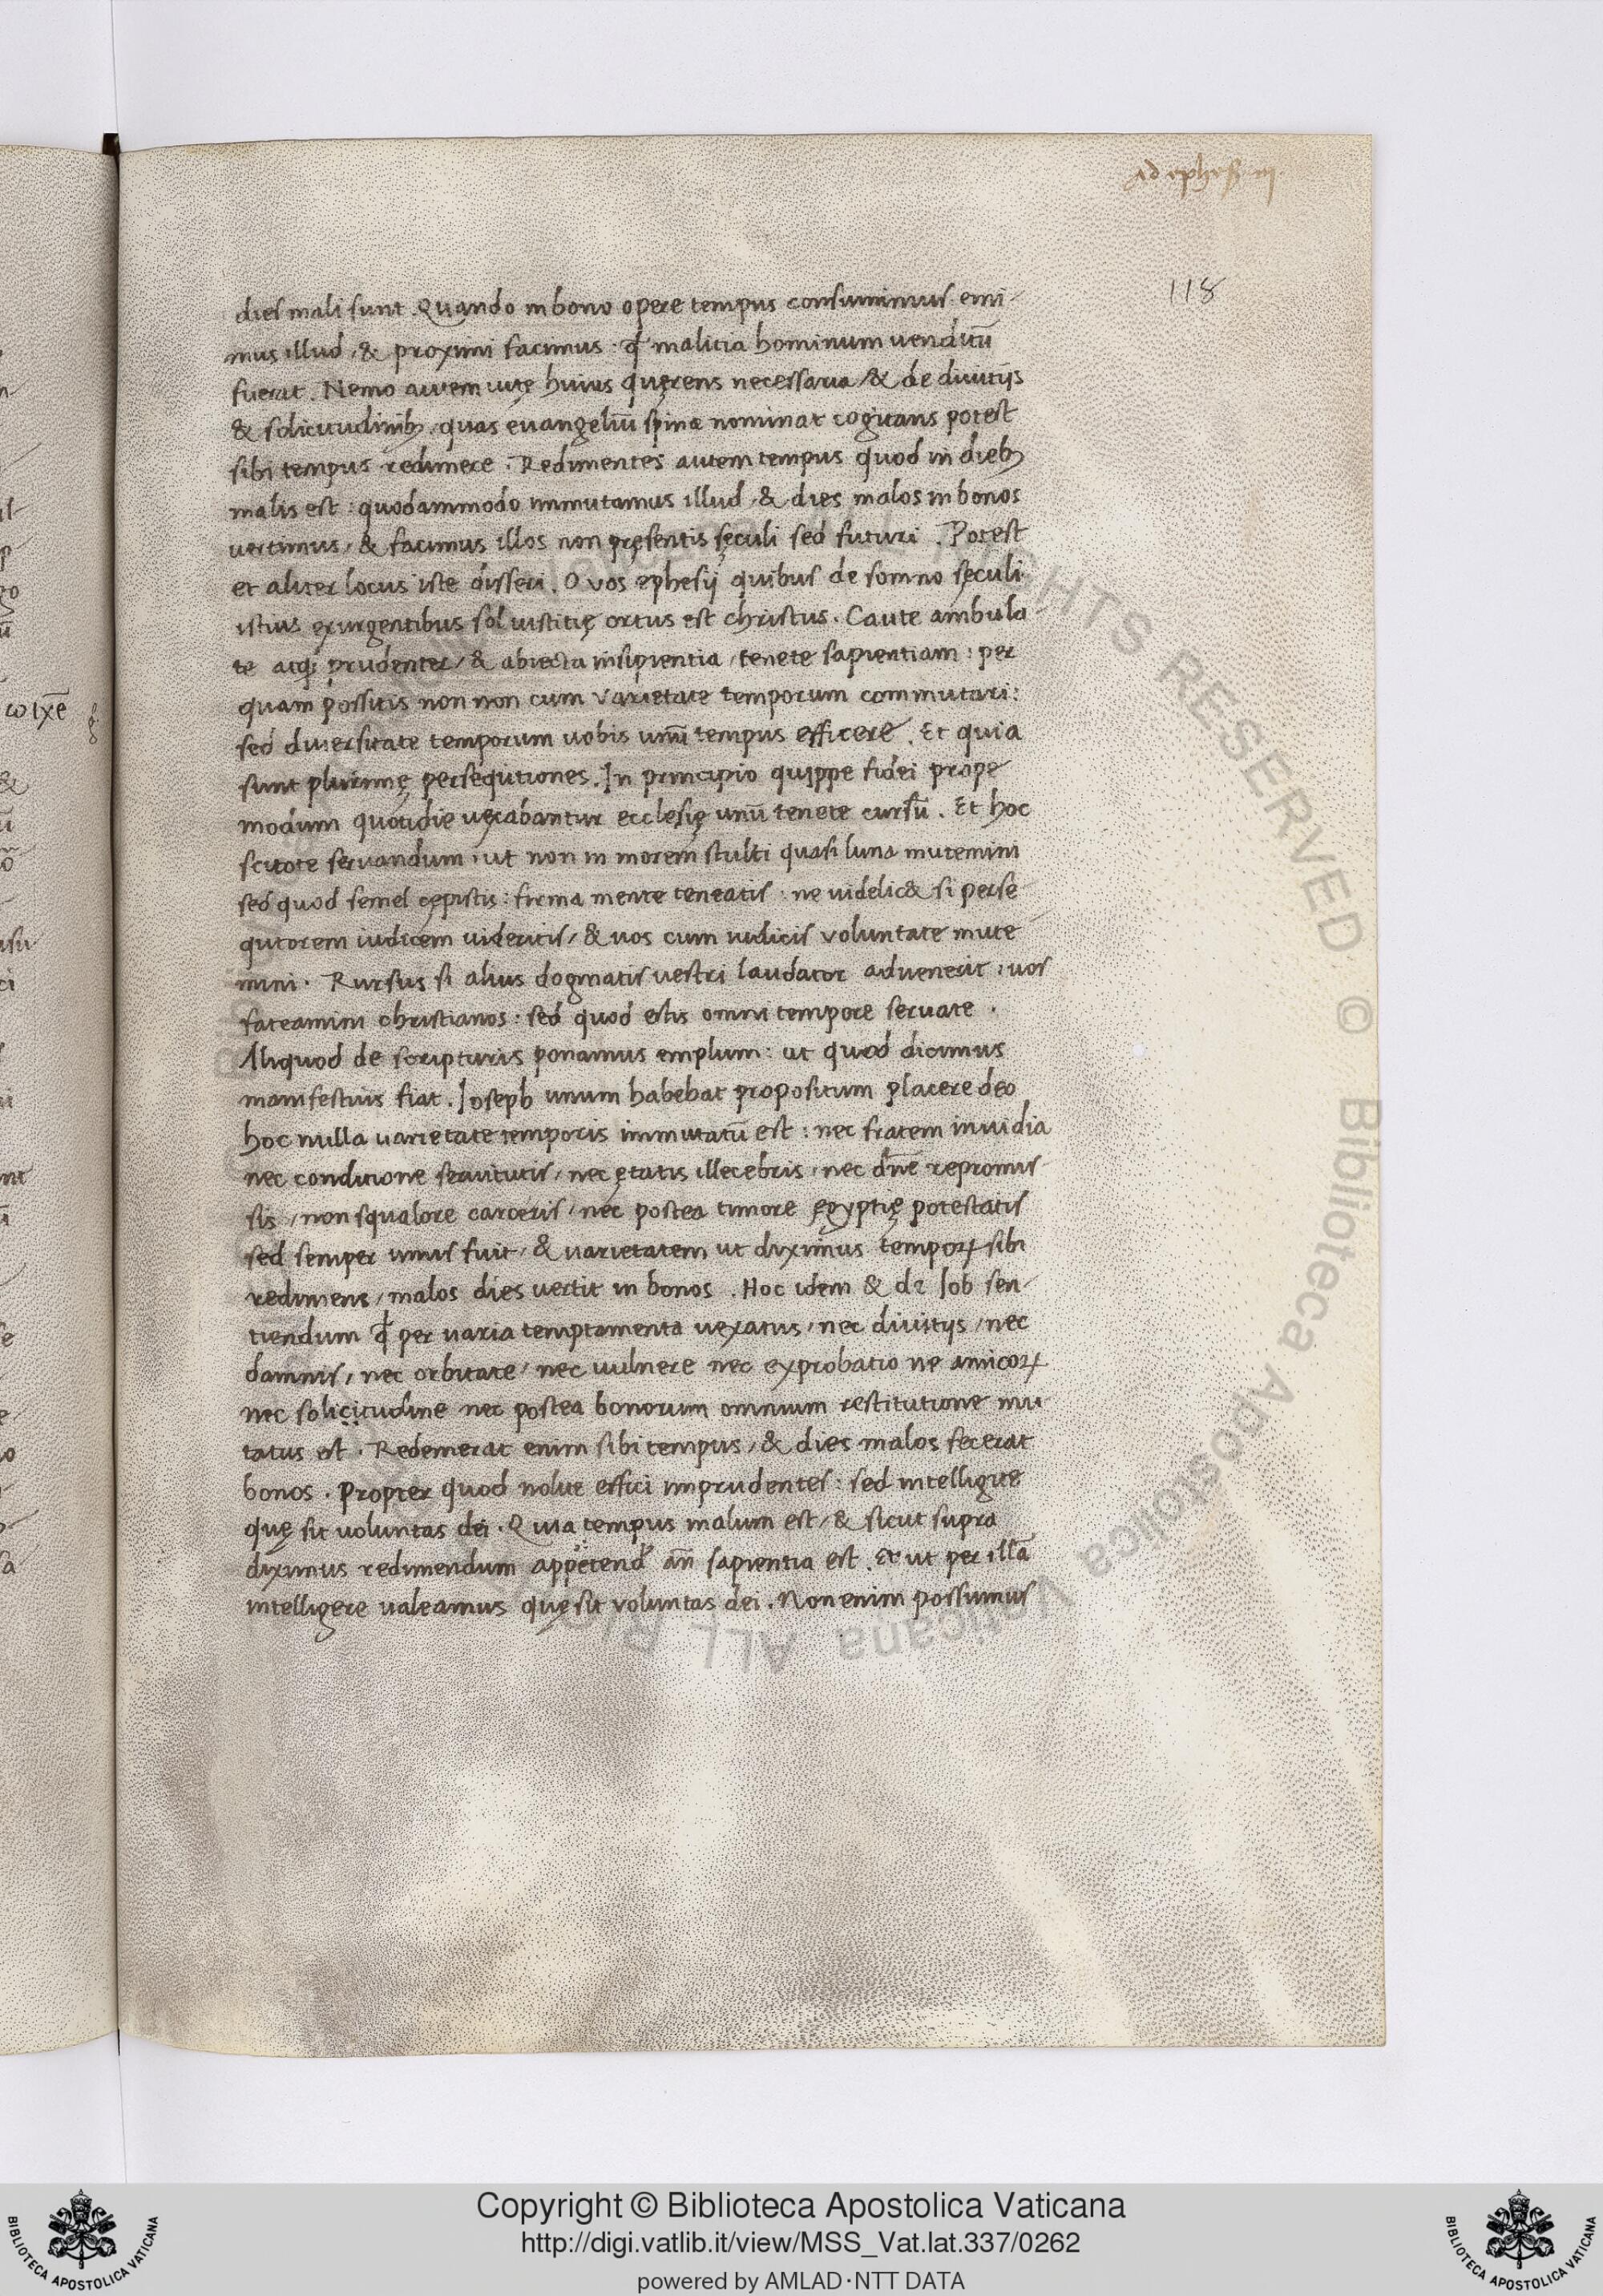 Ad ephes iii
118
dies mali sunt. Quando in bono opere tempus consumimus emi-
mus illud, & proximi facimus: qđ malicia hominum venditū
fuerat. Nemo autem vitę huius quęrens necessaria & de divitijs
& solicitudinib₃, quas evangeliū spinæ nominat cogitans potest
sibi tempus redimere. Redimentes autem tempus quod in dieb₃
malis est: quodammodo immutamus illud, & dies malos in bonos
vertimus, & facimus illos non pręsentis sęculi sed futuri. Potest
et aliter locus iste disseri. O vos ephesij quibus de somno sęculi
istius exurgentibus sol iustitię ortus est christus. Caute ambula-
te atq; prudenter, & abiecta insipientia, tenete sapientiam: per
quam possitis non non cum varietate temporum commutari:
sed diversitate temporum vobis unū tempus efficere. Et quia
sunt plurimę persequtiones. In principio quippe fidei prope
modum quotidie vexabantur ecclesię unū tenete cursū. Et hoc
scitote servandum, ut non in morem stulti quasi luna mutemini
sed quod semel cępistis: firma mente teneatis: ne videlic& si perse-
qutorem iudicem videritis, & vos cum iudicis voluntate mute
mini. Rursus si alius dogmatis vestri laudator advenerit, vos
fateamini christianos: sed quod estis omni tempore servate.
Aliquod de scripturis ponamus emplum: ut quod dicimus
manifestius fiat. Ioseph unum habebat propositum placere deo
hoc nulla varietate temporis immutatū est: nec fratem invidia
nec conditione servitutis, nec ętatis illecebris, nec dn̄e repromis-
sis, non squalore carceris, nec postea timore ęgyptię potestatis
sed semper unus fuit, & varietatem ut diximus tempoꝝ sibi
redimens, malos dies vertit in bonos. Hoc idem & de Iob sen-
tiendum qđ per varia temptamenta vexatus, nec divitijs, nec
damnis, nec orbitate, nec vulnere nec exprobatio ne amicoꝝ
nec solicitudine nec postea bonorum omnium restitutione mu
tatus est. Redemerat enim sibi tempus, & dies malos fecerat
bonos. Propter quod nolite effici imprudentes: sed intelligite
quę sit voluntas dei. Quia tempus malum est, & sicut supra
diximus redimendum appetend an̄ sapientia est. Et ut per illā
intelligere valeamus quę sit voluntas dei. Non enim possumus
ωιχε̄
© Biblioteca Apostolica Vaticana ALL RIGHTS RESERVED
Copyright © Biblioteca Apostolica Vaticana
http://digi.vatlib.it/view/MSS_Vat.lat.337/0262
powered by AMLAD·NTT DATA
BIBLIOTECA APOSTOLICA VATICANA
BIBLIOTECA APOSTOLICA VATICANA